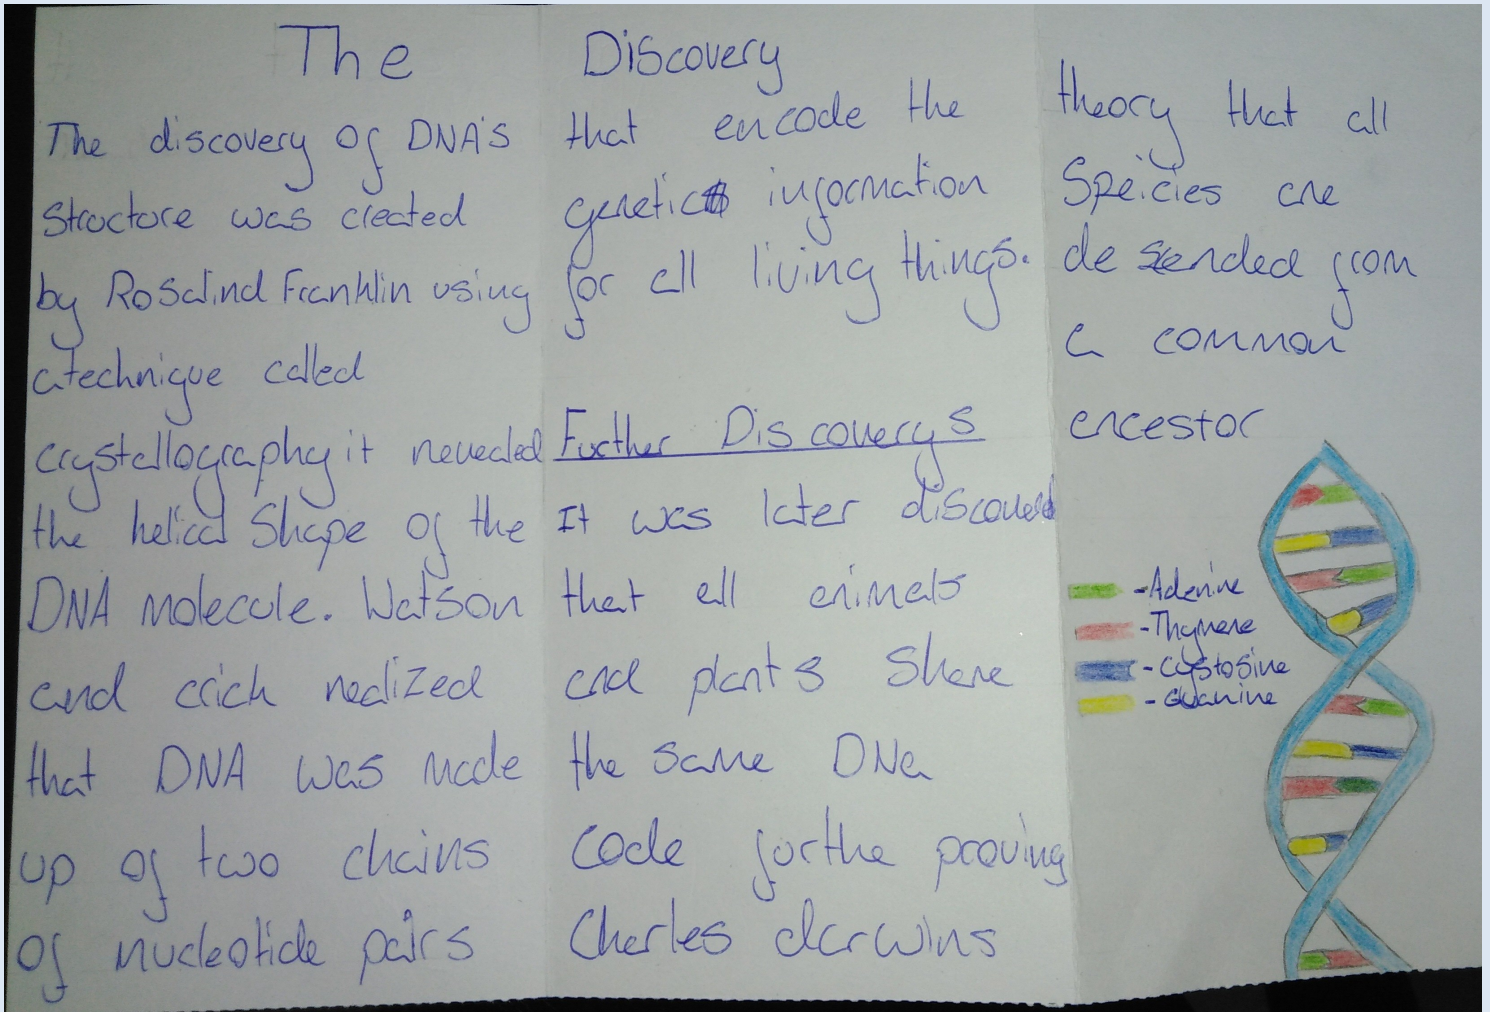 The Discovery
The discovery of DNA's
structure was created
by Rosalind Franklin using
a technique called
crystallography it revealed
the helical shape of the
DNA molecule. Watson
and crick realized
that DNA was made
up of two chains
of nucleotide pairs
that encode the
genetic information
for all living things.
Further Discoverys
It was later discovered
that all animals
and plants share
the same DNa
code furthe proving
Charles darwins
theory that all
Speicies are
desended from
a common
ancestor
-Adenine
-Thymene
-Cystosine
-Guanine